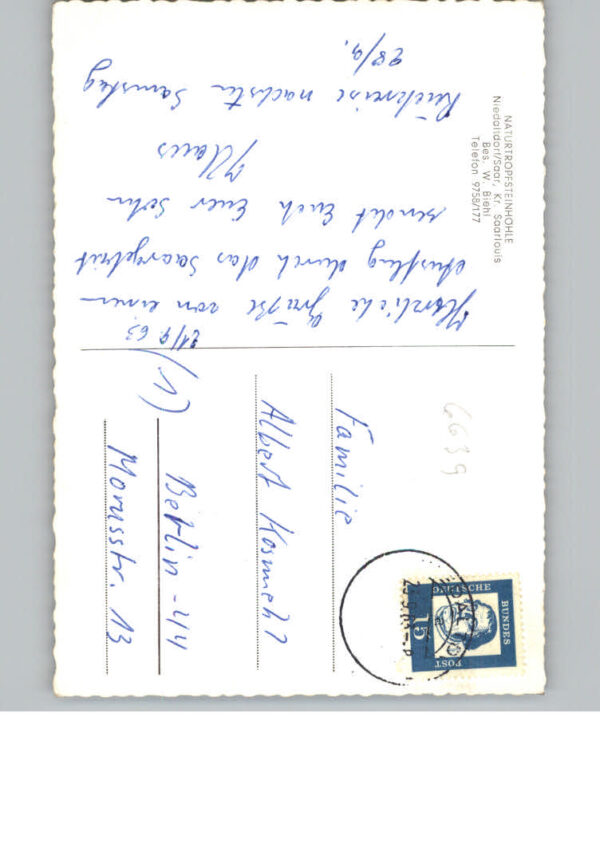 NATURTROPFSTEINHÖHLE
Niedaltdorf/Saar, Kr. Saarlouis
Bes. W. Biehl
Telefon 9758/177
21/9.63
Herzliche Grüße von einem
Ausflug durch das Saargebiet
sendet Euch Euer Sohn
Klaus
Rückreise nächsten Samstag
28/9.
6639
DEUTSCHE
BUNDES
POST
15
Familie
Albert Kosmehl
(1) Berlin-44
Morusstr. 13